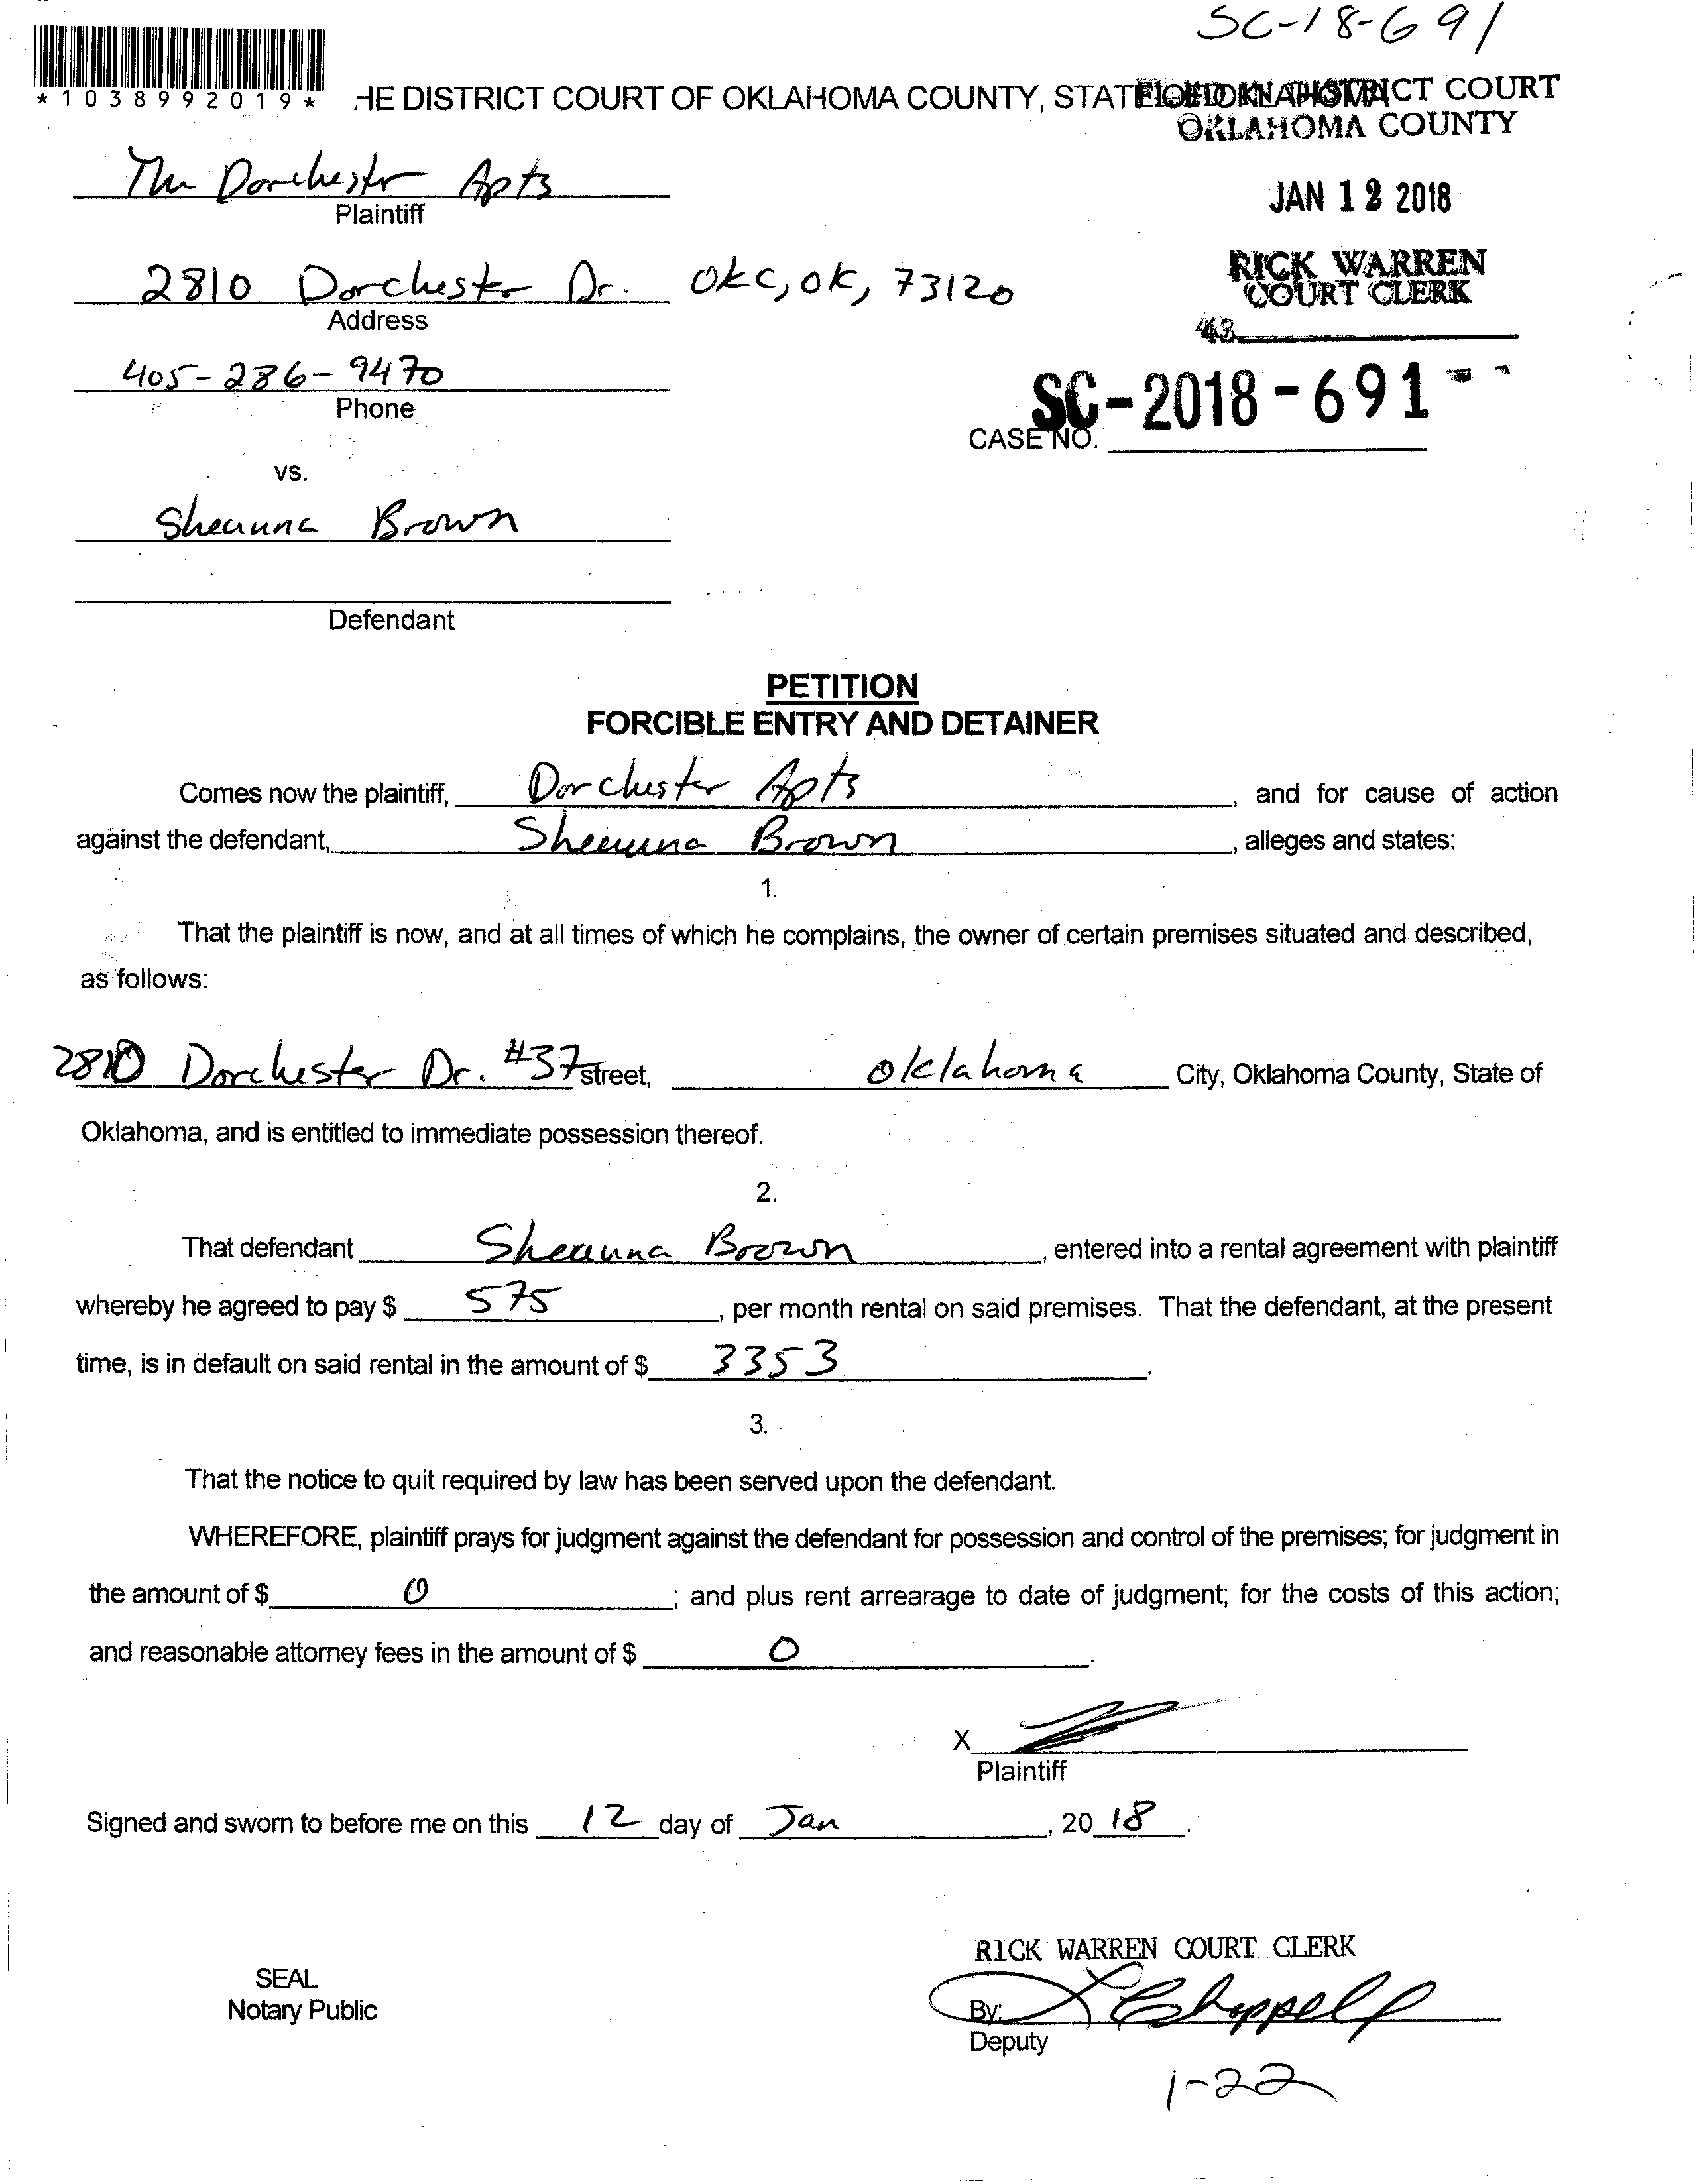 SC-18-691
*1038992019*
HE DISTRICT COURT OF OKLAHOMA COUNTY, STATE OF OKLAHOMA
FILED IN DISTRICT COURT
OKLAHOMA COUNTY
The Dorchester Apts
Plaintiff
JAN 12 2018
2810 Dorchester Dr. OKC, OK, 73120
Address
RICK WARREN
COURT CLERK
43
405-286-9470
Phone
SC-2018-691
CASE NO.
vs.
Sheaunna Brown
Defendant
PETITION
FORCIBLE ENTRY AND DETAINER
Comes now the plaintiff, Dorchester Apts, and for cause of action
against the defendant, Sheaunna Brown, alleges and states:
1.
That the plaintiff is now, and at all times of which he complains, the owner of certain premises situated and described,
as follows:
2810 Dorchester Dr. #37 street, Oklahoma City, Oklahoma County, State of
Oklahoma, and is entitled to immediate possession thereof.
2.
That defendant Sheaunna Brown, entered into a rental agreement with plaintiff
whereby he agreed to pay $ 575, per month rental on said premises. That the defendant, at the present
time, is in default on said rental in the amount of $ 3353.
3.
That the notice to quit required by law has been served upon the defendant.
WHEREFORE, plaintiff prays for judgment against the defendant for possession and control of the premises; for judgment in
the amount of $ 0; and plus rent arrearage to date of judgment; for the costs of this action;
and reasonable attorney fees in the amount of $ 0.
X
Plaintiff
Signed and sworn to before me on this 12 day of Jan, 20 18.
RICK WARREN COURT CLERK
SEAL
Notary Public
By: L Chappell
Deputy
1-22